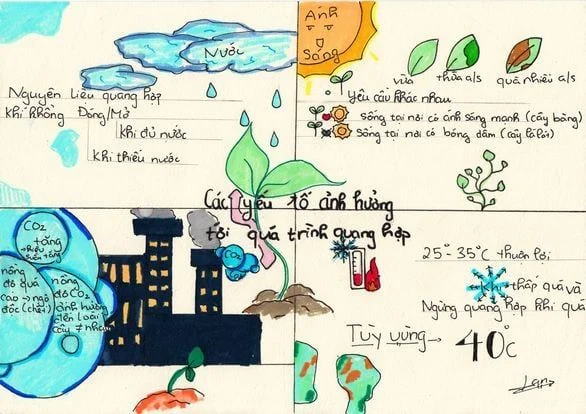 Nước
Nguyên liệu quang hợp
khí khổng Đóng/Mở
khi đủ nước
khi thiếu nước
Ánh
Sáng
vừa
thừa a/s
quá nhiều a/s
Yêu cầu khác nhau
Sống tại nơi có ánh sáng mạnh (cây bàng)
Sống tại nơi có bóng dâm (cây lá lốt)
Các yếu tố ảnh hưởng
tới quá trình quang hợp
CO2
tăng
→ hiệu
suất tăng
nồng
độ quá
cao → ngộ
độc (chết)
nồng
độ CO2
ảnh hưởng
lên loài
cây ≠ nhau
CO2
25°- 35°C thuận lợi
Khi thấp quá và
Ngừng quang hợp khi quá
Tùy vùng → 40°C
Lan